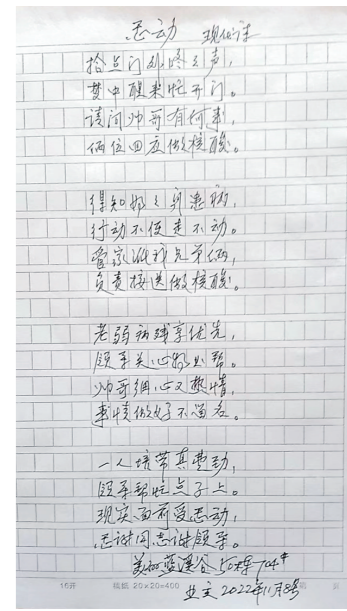 感动 现代诗
拾点门外咚咚声,
梦中醒来忙开门。
请问帅哥有何事,
俩位回应做核酸。
得知奶奶身患病,
行动不便走不动。
管家派我兄弟俩,
负责接送做核酸。
老弱病残享优先,
领导关心物业帮。
帅哥细心又热情,
事情做好不留名。
一人培带真费劲,
领导帮忙点子上。
现实面前受感动,
感谢同志谢领导。
美的蓝溪谷50栋704#
业主2022年11月8号
16开 稿纸 20×20=400 页